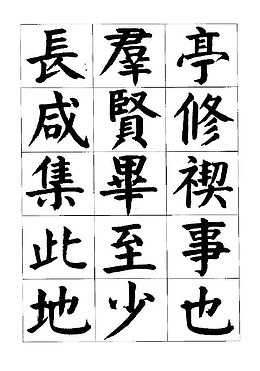 亭修禊事也
羣賢畢至少
長咸集此地